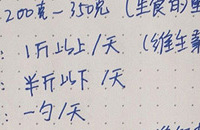 200克-350克 (生食的量
: 1斤以上/天 (维生素
: 半斤以下/天
: 一勺/天